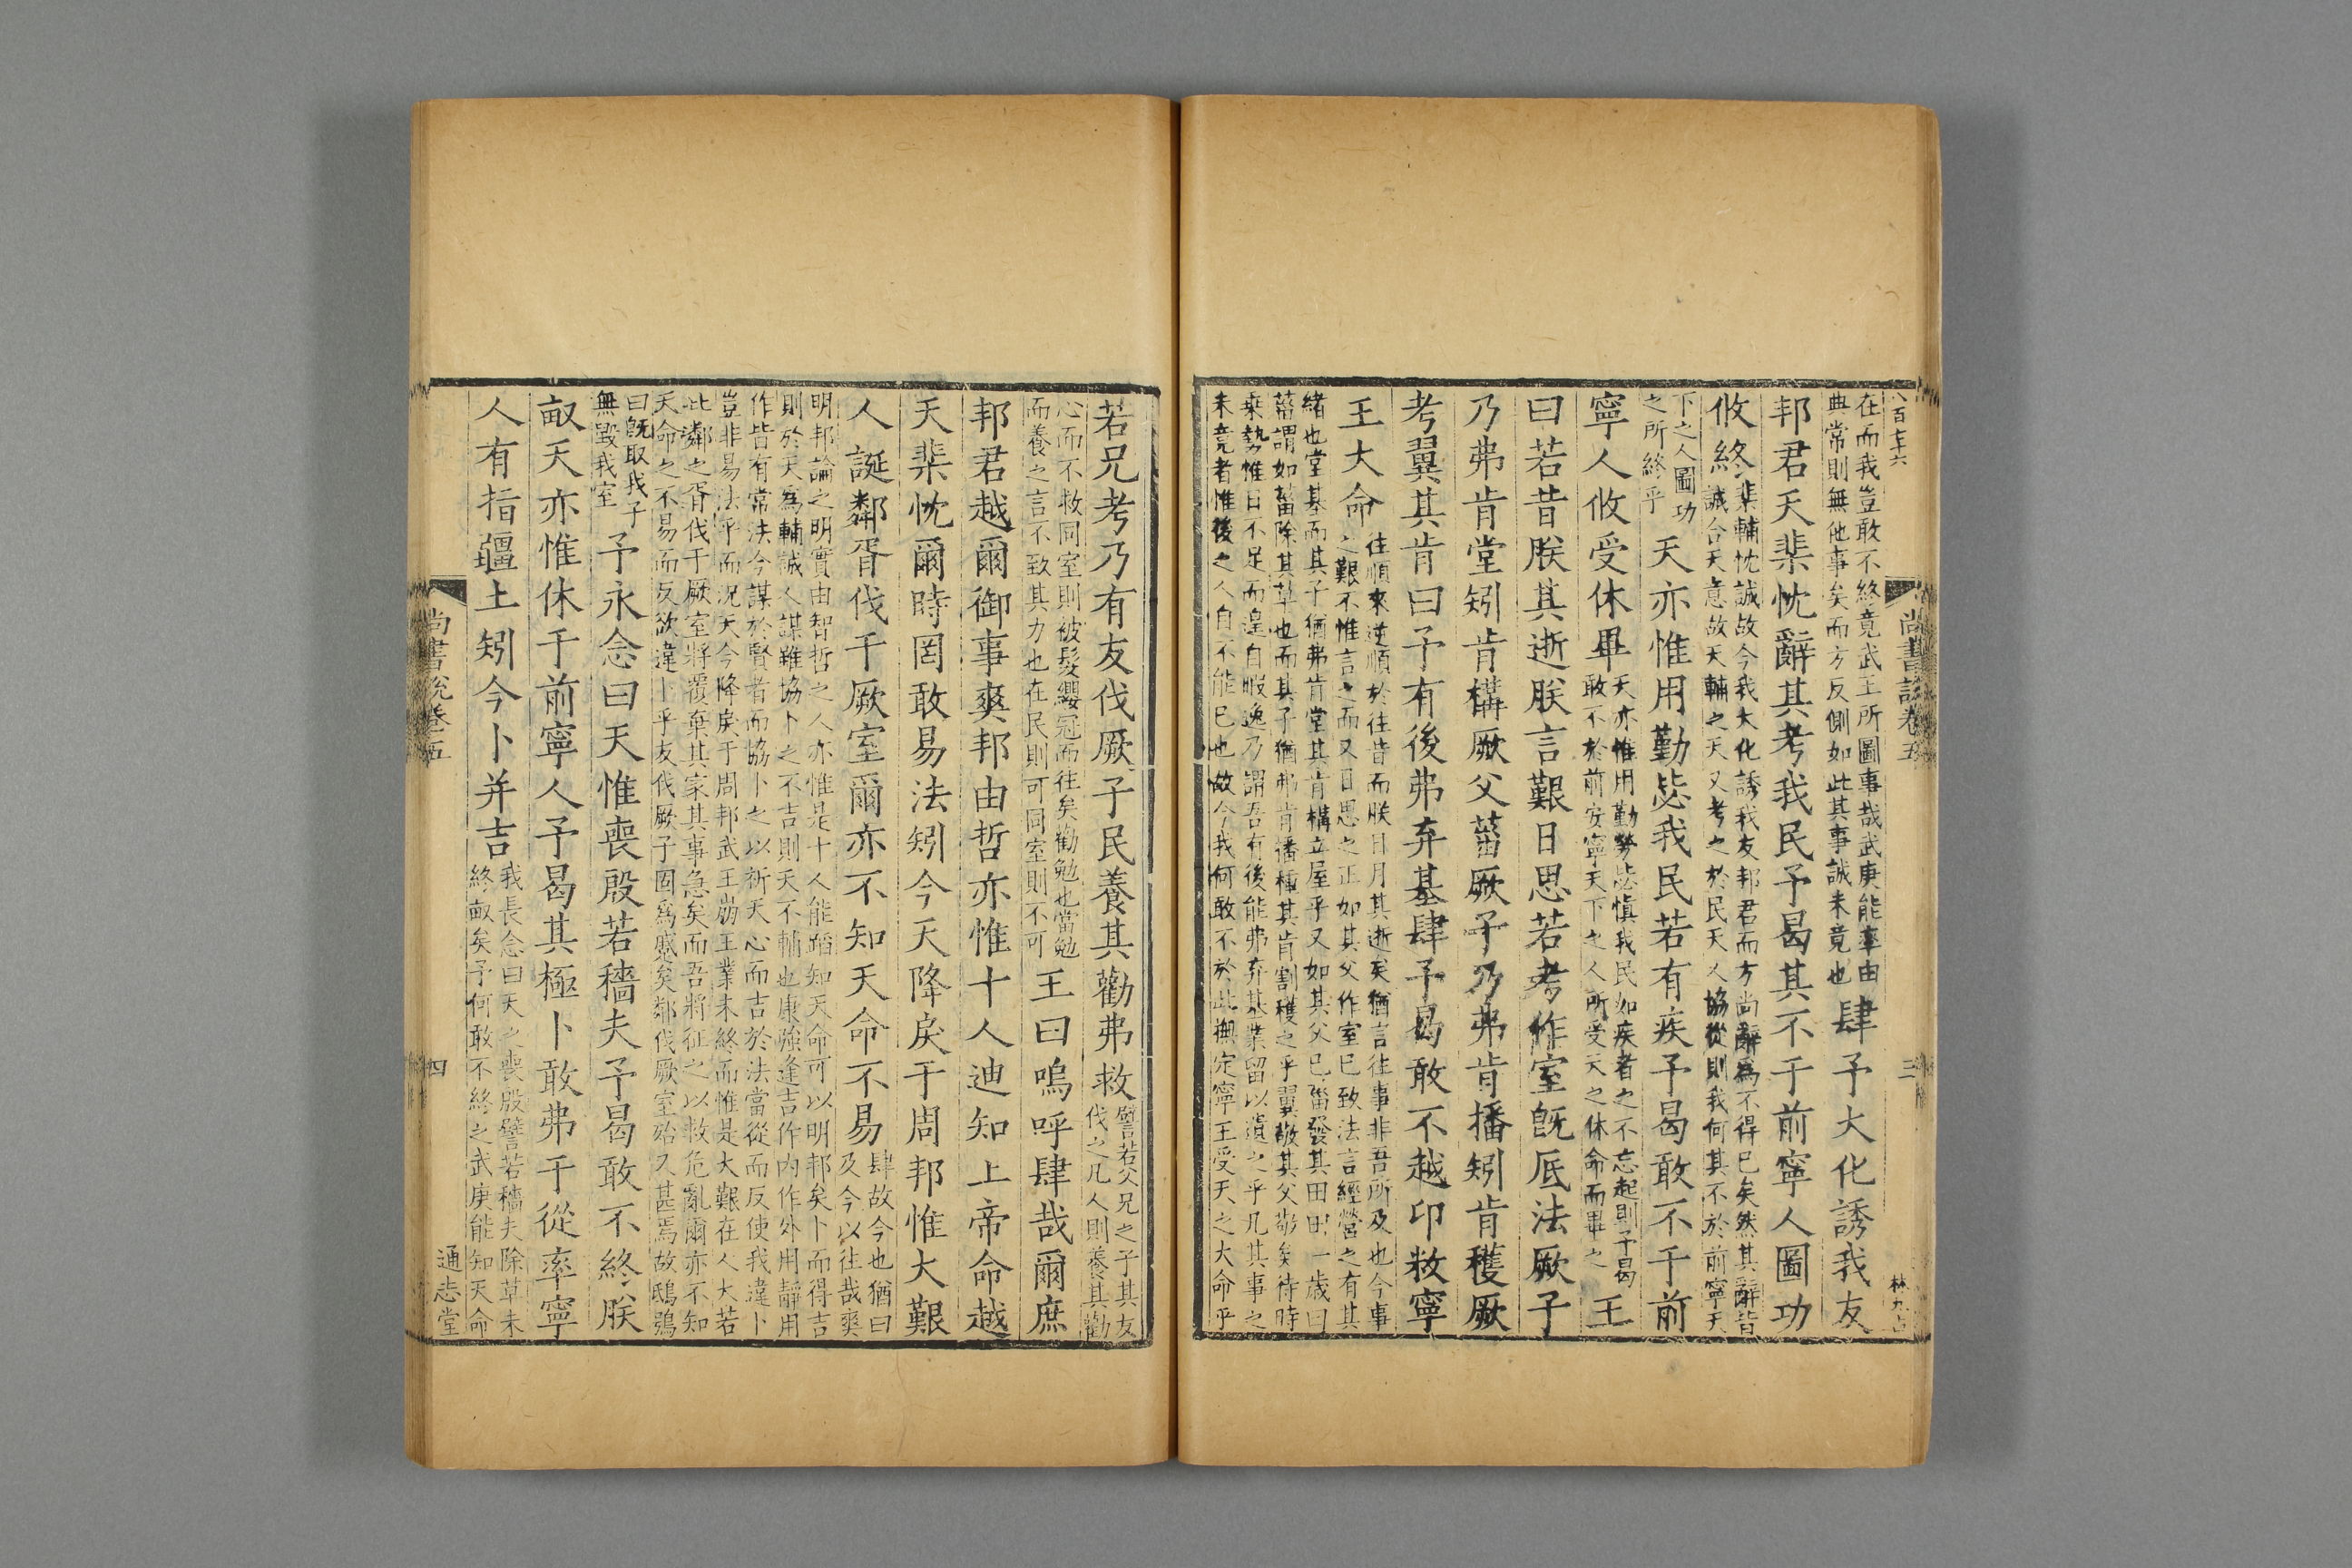 尚書說卷五
三
在而我豈敢不終竟武王所圖事哉武庚能率由
典常則無他事矣而方反側如此其事誠未竟也
肆予大化誘我友
邦君天棐忱辭其考我民予曷其不于前寧人圖功
攸終
棐輔忱誠故今我大化誘我友邦君而方尚辭為不得已矣然其辭皆
誠合天意故天輔之天又考之於民天人協從則我何其不於前寧天
下之人圖功
之所終乎
天亦惟用勤毖我民若有疾予曷敢不于前
寧人攸受休畢
天亦惟用勤勞毖慎我民如疾者之不忘起則予曷
敢不於前安寧天下之人所受天之休命而畢之
王
曰若昔朕其逝朕言艱日思若考作室旣厎法厥子
乃弗肯堂矧肯構厥父菑厥子乃弗肯播矧肯穫厥
考翼其肯曰予有後弗弃基肆予曷敢不越卬敉寧
王大命
往順來逆順於往昔而朕日月其逝矣猶言往事非吾所及也今事
之艱不惟言之而又日思之正如其父作室已致法言經營之有其
緒也堂基而其子猶弗肯堂其肯構立屋乎又如其父已菑發其田田一歲曰
菑謂如菑除其草也而其子猶弗肯播種其肯割穫之乎翼敬其父敬矣待時
乘勢惟日不足而遑自暇逸乃謂吾有後能弗弃基業留以遺之乎凡其事之
未竟者惟後之人自不能已也故今我何敢不於此撫定寧王受天之大命乎
若兄考乃有友伐厥子民養其勸弗救
譬若父兄之子其友
伐之凡人則養其勸
心而不救同室則被髮纓冠而往矣勸勉也當勉
而養之言不致其力也在民則可同室則不可
王曰嗚呼肆哉爾庶
邦君越爾御事爽邦由哲亦惟十人迪知上帝命越
天棐忱爾時罔敢易法矧今天降戾于周邦惟大艱
人誕鄰胥伐于厥室爾亦不知天命不易
肆故今也猶曰
及今以往哉爽
明邦論之明實由智哲之人亦惟是十人能蹈知天命可以明邦矣卜而得吉
則於天為輔誠人謀雖協卜之不吉則天不輔也康強逢吉作內作外用靜用
作皆有常法今謀於賢者而協卜之以祈天心而吉於法當從而反使我違卜
豈非易法乎而況天今降戾于周邦武王崩王業未終而惟是大艱在人大若
此鄰之胥伐于厥室將覆棄其家其事急矣而吾將征之以救危亂爾亦不知
天命之不易而友欲違卜乎友伐厥子固為蹙矣鄰伐厥室殆又甚焉故鴟鴞
曰旣取我子
無毀我室
予永念曰天惟喪殷若穡夫予曷敢不終朕
畝天亦惟休于前寧人予曷其極卜敢弗于從率寧
人有指疆土矧今卜并吉
我長念曰天之喪殷譬若穡夫除草未
終畝矣予何敢不終之武庚能知天命
尚書說卷五
四
通志堂